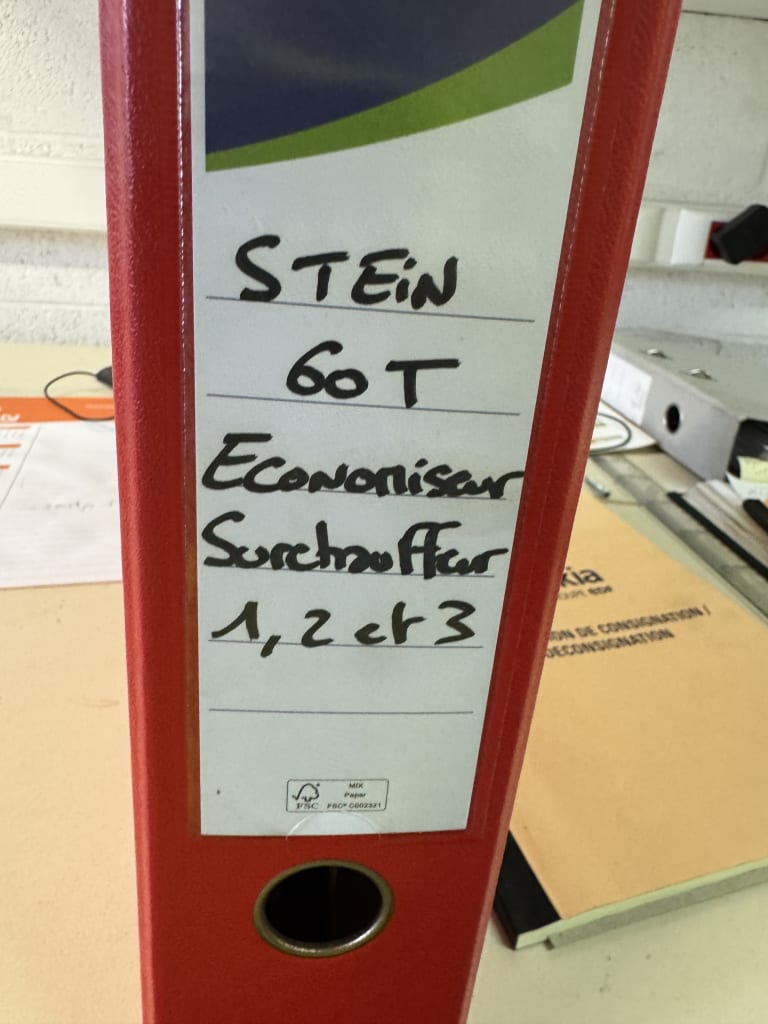 STEIN
60T
Economiseur
Surchauffeur
1, 2 et 3
FSC
MIX
Paper
FSC® C002321
kia
OUPE EDF
ON DE CONSIGNATION /
DECONSIGNATION